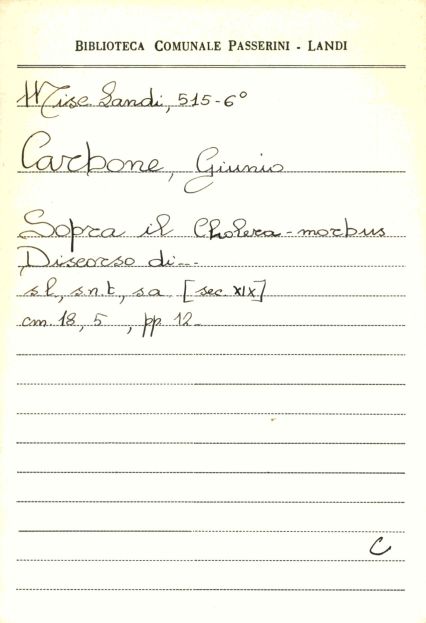 BIBLIOTECA COMUNALE PASSERINI - LANDI
Misc. Landi, 515-6°
Carbone, Giunio
Sopra il Cholera-morbus
Discorso di...
s.l., s.n.t., s.a. [sec. XIX]
cm. 18,5 , pp. 12.
C